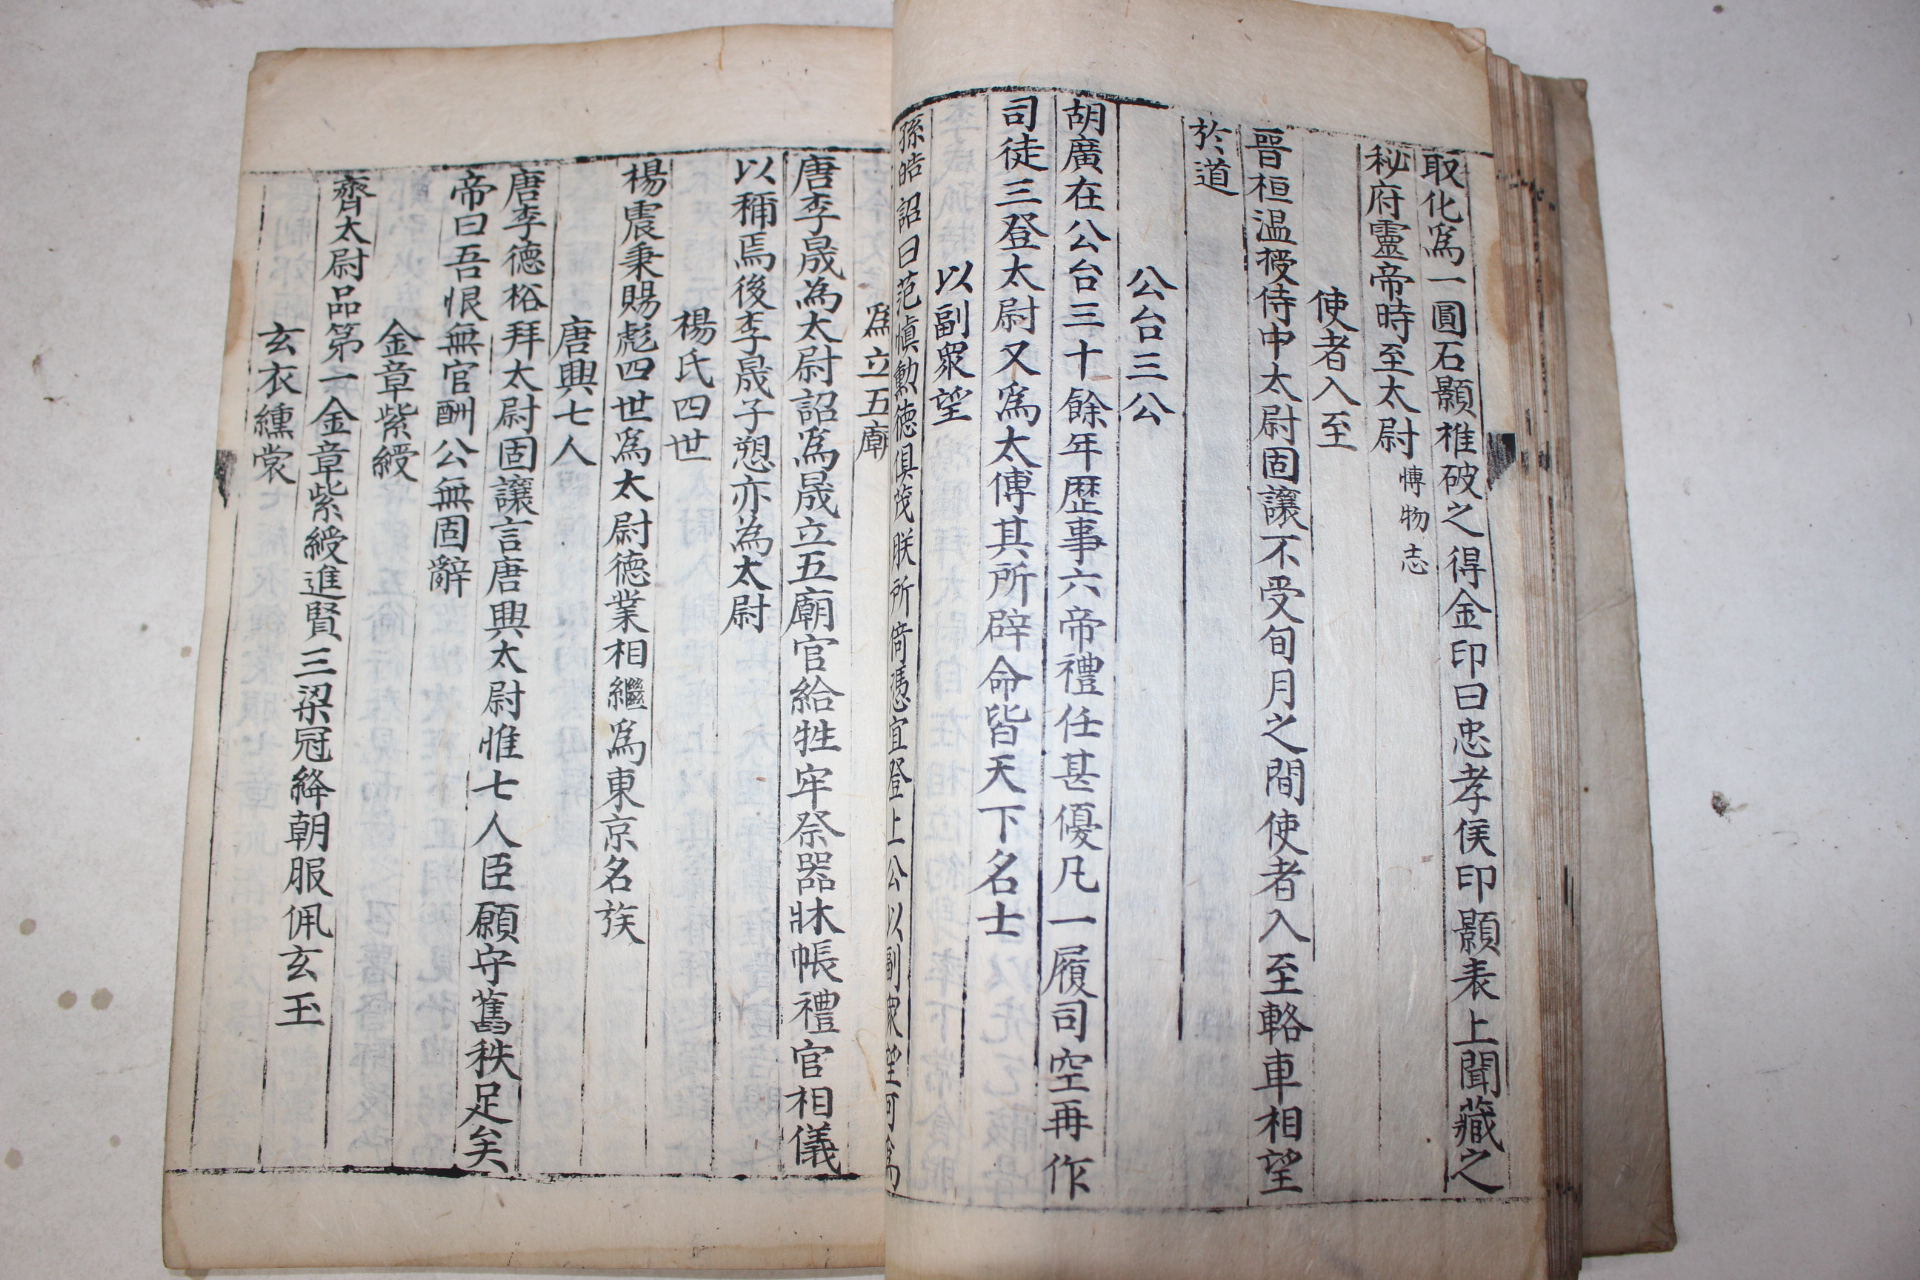 取化爲一圓石顥椎破之得金印曰忠孝侯印顥表上聞藏之
秘府靈帝時至太尉 博物志
使者入至
晉桓温授侍中太尉固讓不受旬月之間使者入至輅車相望
於道
公台三公
胡廣在公台三十餘年歷事六帝禮任甚優凡一履司空再作
司徒三登太尉又爲太傅其所辟命皆天下名士
以副衆望
孫皓詔曰范愼勳德俱茂朕所倚憑宜登上公以副衆望可爲
爲立五廟
唐李晟為太尉詔爲晟立五廟官給牲牢祭器牀帳禮官相儀
以稱焉後李晟子愬亦為太尉
楊氏四世
楊震秉賜彪四世爲太尉德業相繼爲東京名族
唐興七人
唐李德裕拜太尉固讓言唐興太尉惟七人臣願守舊秩足矣
帝曰吾恨無官酬公無固辭
金章紫綬
齊太尉品第一金章紫綬進賢三梁冠絳朝服佩玄玉
玄衣纁裳